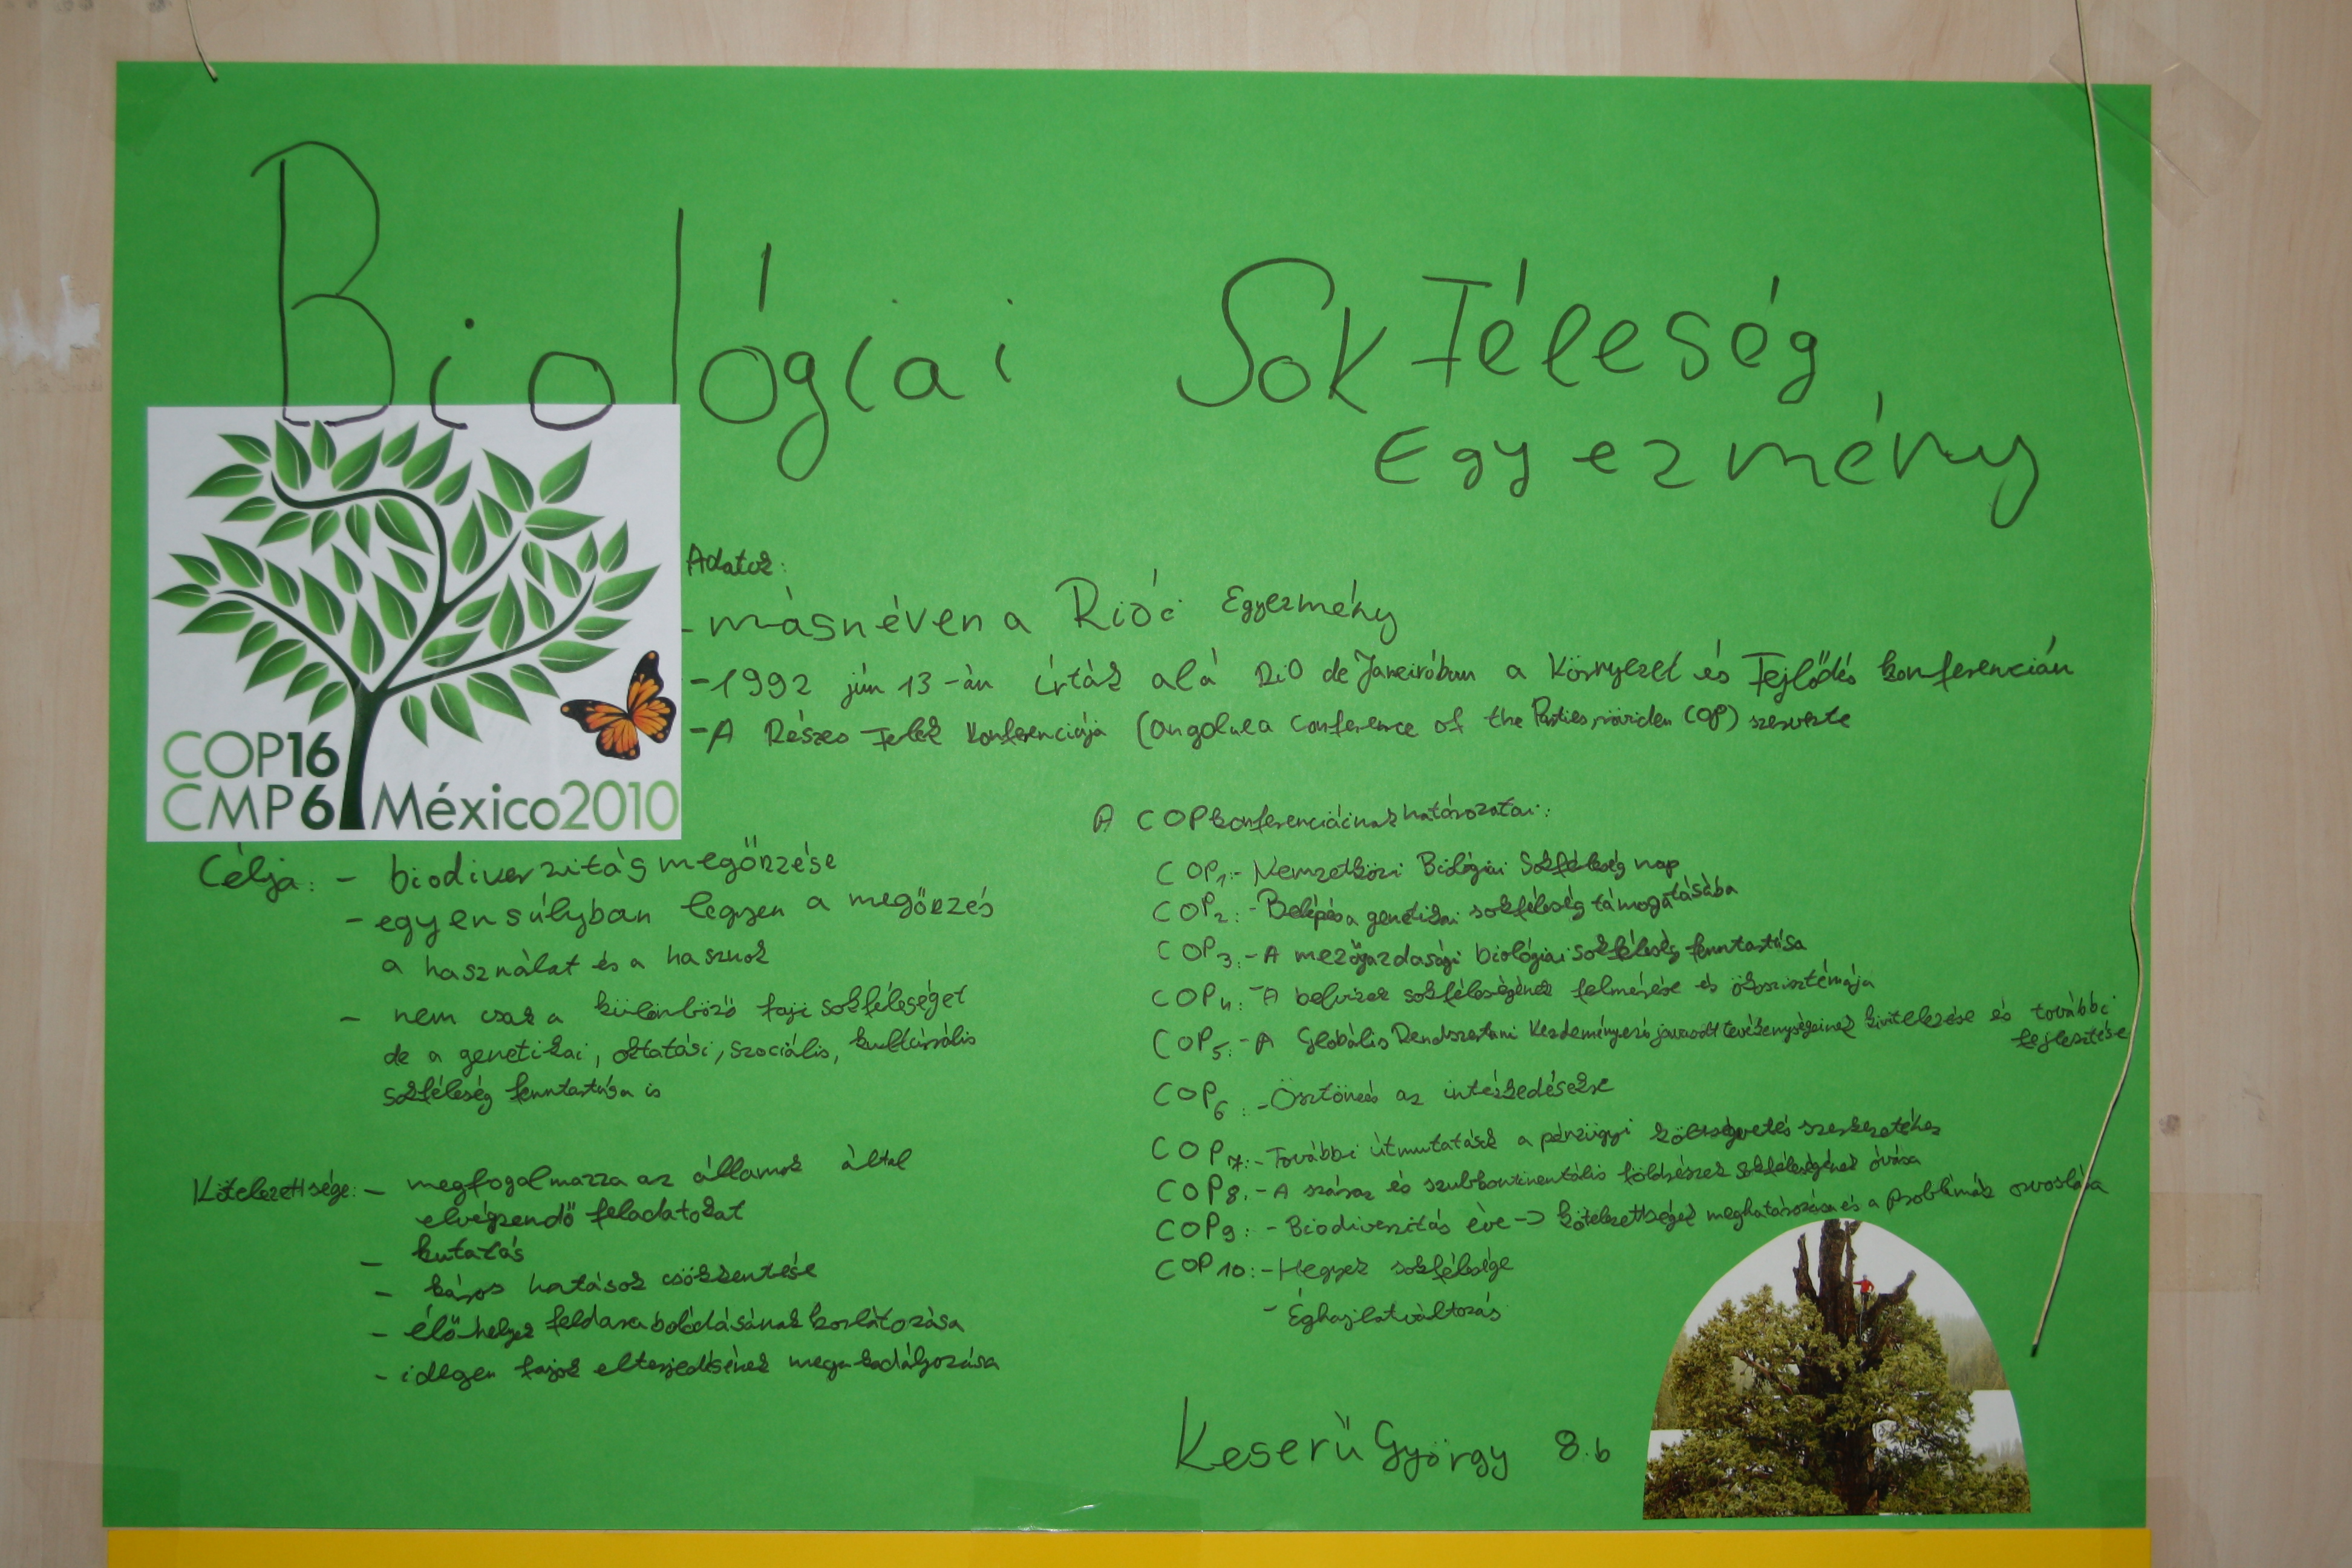 Biológiai Sokféleség
Egyezmény
COP16
CMP6 México2010
Adatok:
- másnéven a Riói Egyezmény
- 1992 jún 13-án írták alá Rio de Janeiróban a Környezet és Fejlődés konferencián
- A Részes Felek Konferenciája (angolul a Conference of the Parties, röviden COP) szervezte
Célja: - biodiverzitás megőrzése
- egyensúlyban legyen a megőrzés
a használat és a hasznok
- nem csak a különböző faji sokféleséget
de a genetikai, oktatási, szociális, kulturális
sokféleség fenntartása is
Kötelezettsége: - megfogalmazza az államok által
elvégzendő feladatokat
- kutatás
- káros hatások csökkentése
- élő-helyek feldarabolódásának korlátozása
- idegen fajok elterjedésének megakadályozása
A COP konferenciáinak határozatai:
COP1: - Nemzetközi Biológiai Sokféleség nap
COP2: - Belépés a genetikai sokféleség támogatásába
COP3: - A mezőgazdasági biológiai sokféleség fenntartása
COP4: - A belvizek sokféleségének felmérése és ökoszisztémája
COP5: - A Globális Rendszertani Kezdeményezés javasolt tevékenységeinek kivitelezése és további
fejlesztése
COP6: - Ösztönzés az intézkedésekre
COP7: - További útmutatások a pénzügyi költségvetés szerkezetéhez
COP8: - A száraz és szubkontinentális földrészek sokféleségének óvása
COP9: - Biodiverzitás éve -> kötelezettségek meghatározása és a problémák orvoslása
COP10: - Hegyek sokfélesége
- Éghajlatváltozás
Keserű György 8.b